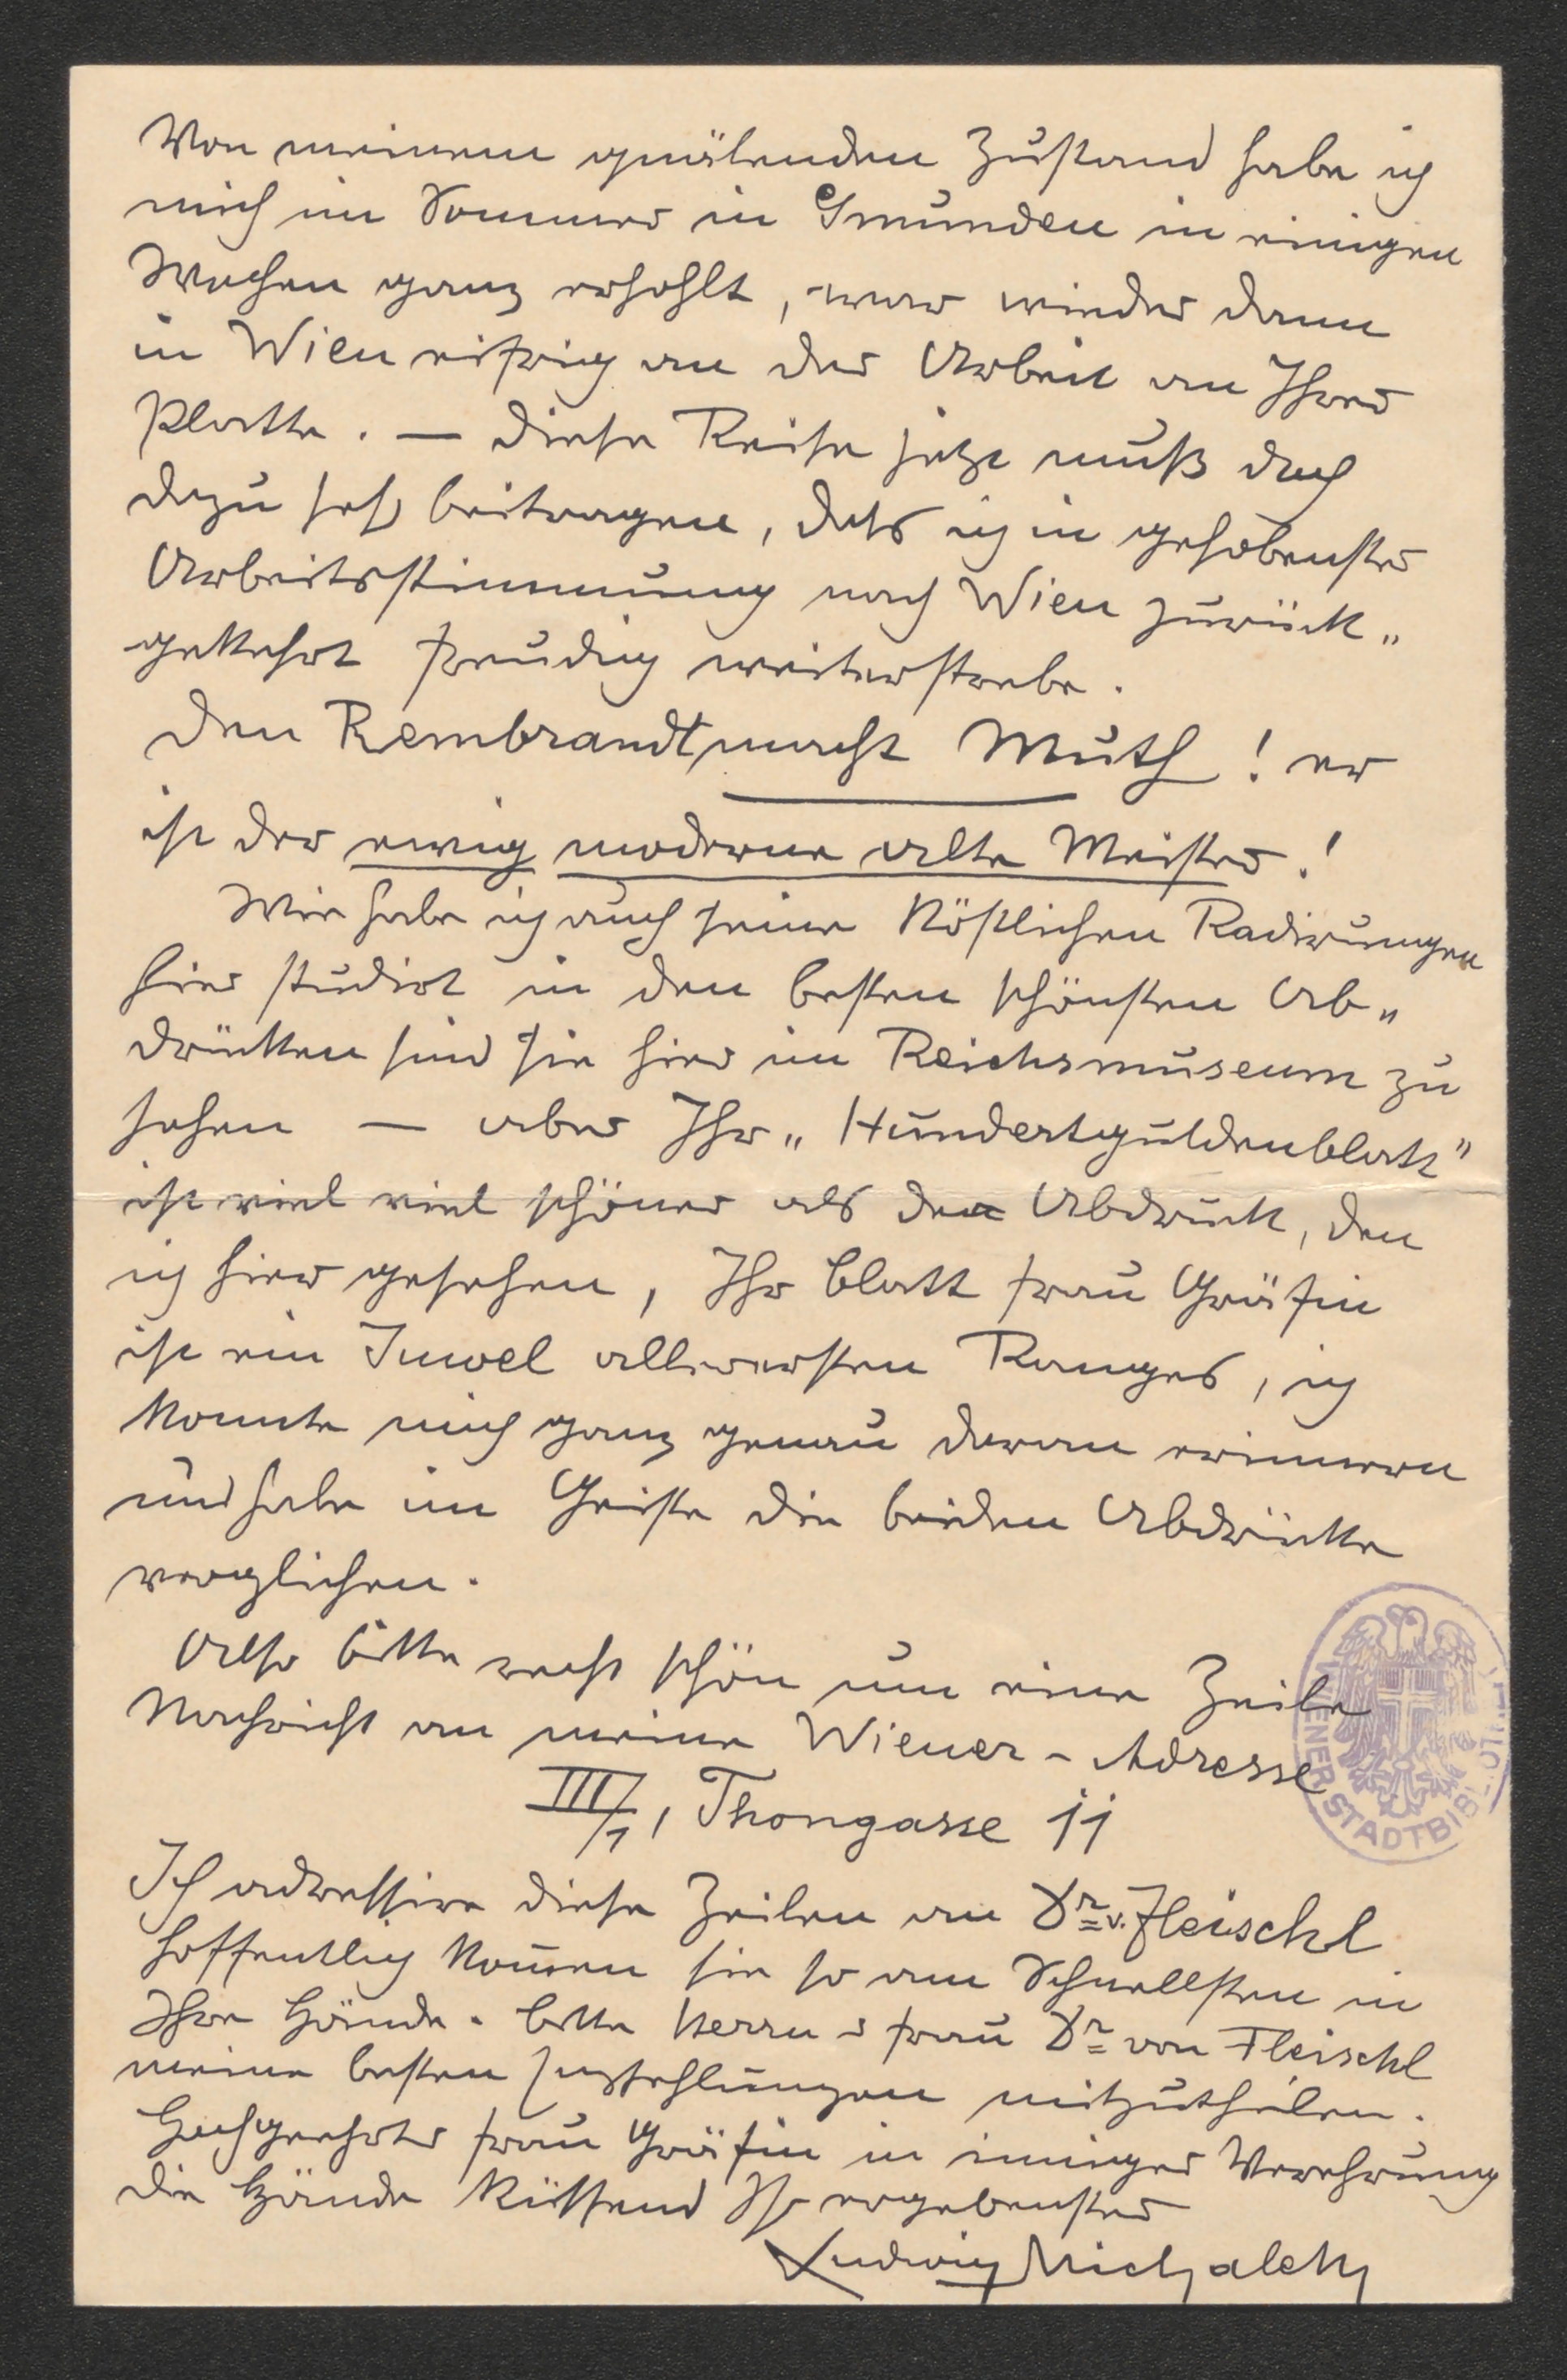 Von meinem quälenden Zustand habe ich
mich im Sommer in Gmunden in einigen
Wochen ganz erhohlt, war wieder dann
in Wien eifrig an der Arbeit an Ihrer
Platte. — Diese Reise jetzt muß doch
dazu sehr beitragen, daß ich in gehobenster
Arbeitsstimmung nach Wien zurück„
gekehrt freudig weiterstrebe.
Den Rembrandt macht Muth! er
ist der ewig moderne alte Meister!
Wie habe ich auch seine köstlichen Radirungen
hier studirt in den besten schönsten Ab„
drücken sind sie hier im Reichsmuseum zu
sehen — aber Ihr „Hundertguldenblatt"
ist viel viel schöner als der Abdruck, den
ich hier gesehen, Ihr Blatt Frau Gräfin
ist ein Juwel allerersten Ranges, ich
konnte mich ganz genau daran erinnern
und habe im Geiste die beiden Abdrücke
verglichen.
Also bitte recht schön um eine Zeile
Nachricht an meine Wiener - Adresse
III/1, Thongasse 11
Ich adressire diese Zeilen an Dr v. Fleischl
hoffentlich kom̅en sie so am Schnellsten in
Ihre Hände. Bitte Herrn u Frau Dr von Fleischl
meine besten Empfehlungen mitzutheilen.
Hochgeehrte Frau Gräfin in inniger Verehrung
die Hände küssend Ihr ergebenster
Ludwig Michalek
WIENER STADTBIBLIOTHEK